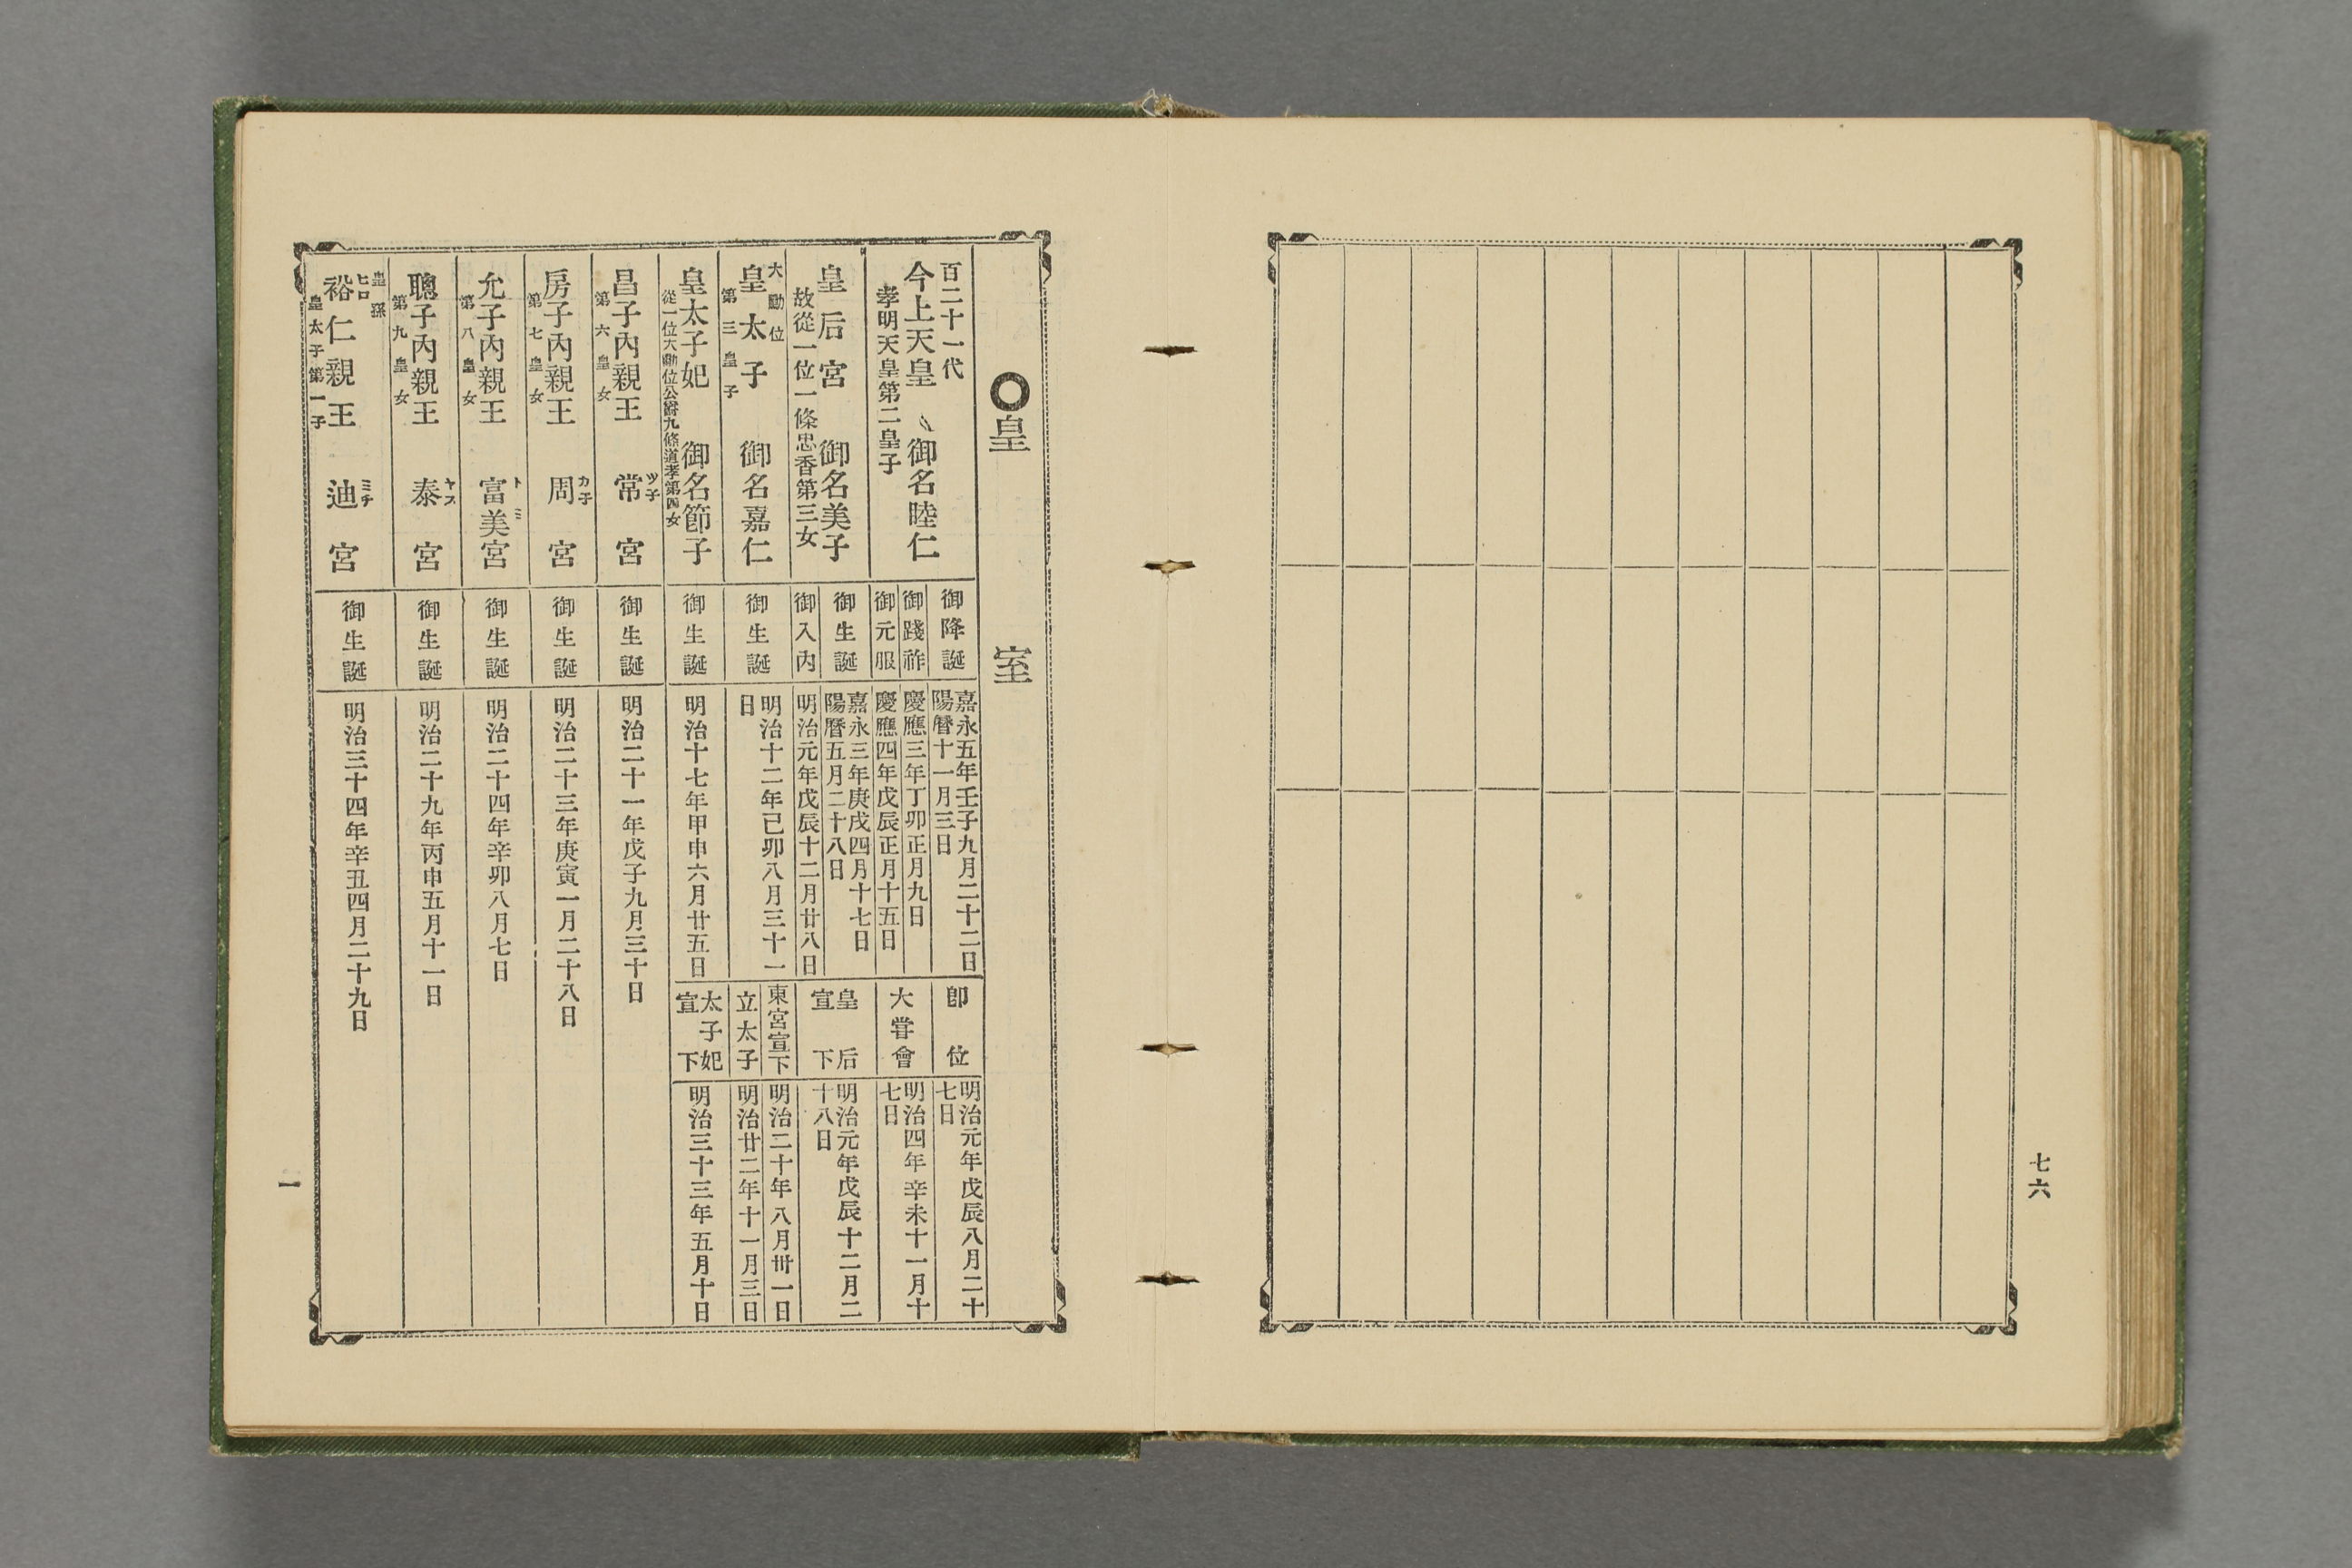 七六
○皇室
百二十一代
今上天皇 御名睦仁
孝明天皇第二皇子
御降誕
嘉永五年壬子九月二十二日
陽曆十一月三日
御踐祚
慶應三年丁卯正月九日
御元服
慶應四年戊辰正月十五日
卽位
明治元年戊辰八月二十
七日
大甞會
明治四年辛未十一月十
七日
皇后宮 御名美子
故從一位一條忠香第三女
御生誕
嘉永三年庚戌四月十七日
陽曆五月二十八日
御入內
明治元年戊辰十二月廿八日
皇后
宣下
明治元年戊辰十二月二
十八日
大勳位
皇太子 御名嘉仁
第三皇子
御生誕
明治十二年己卯八月三十一
日
東宮宣下
明治二十年八月卅一日
立太子
明治廿二年十一月三日
皇太子妃 御名節子
從一位大勳位公爵九條道孝第四女
御生誕
明治十七年甲申六月廿五日
太子妃
宣下
明治三十三年五月十日
昌子內親王 常宮
ツ子
第六皇女
御生誕
明治二十一年戊子九月三十日
房子內親王 周宮
カ子
第七皇女
御生誕
明治二十三年庚寅一月二十八日
允子內親王 富美宮
ト ミ
第八皇女
御生誕
明治二十四年辛卯八月七日
聰子內親王 泰宮
ヤス
第九皇女
御生誕
明治二十九年丙申五月十一日
皇孫
ヒロ ミチ
裕仁親王 迪宮
皇太子第一子
御生誕
明治三十四年辛丑四月二十九日
一